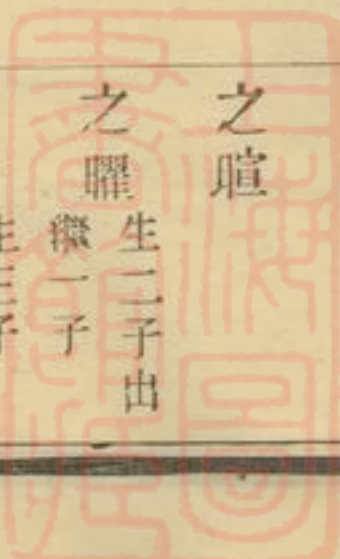 之暄
之曜
生二子出
繼一子
生三子